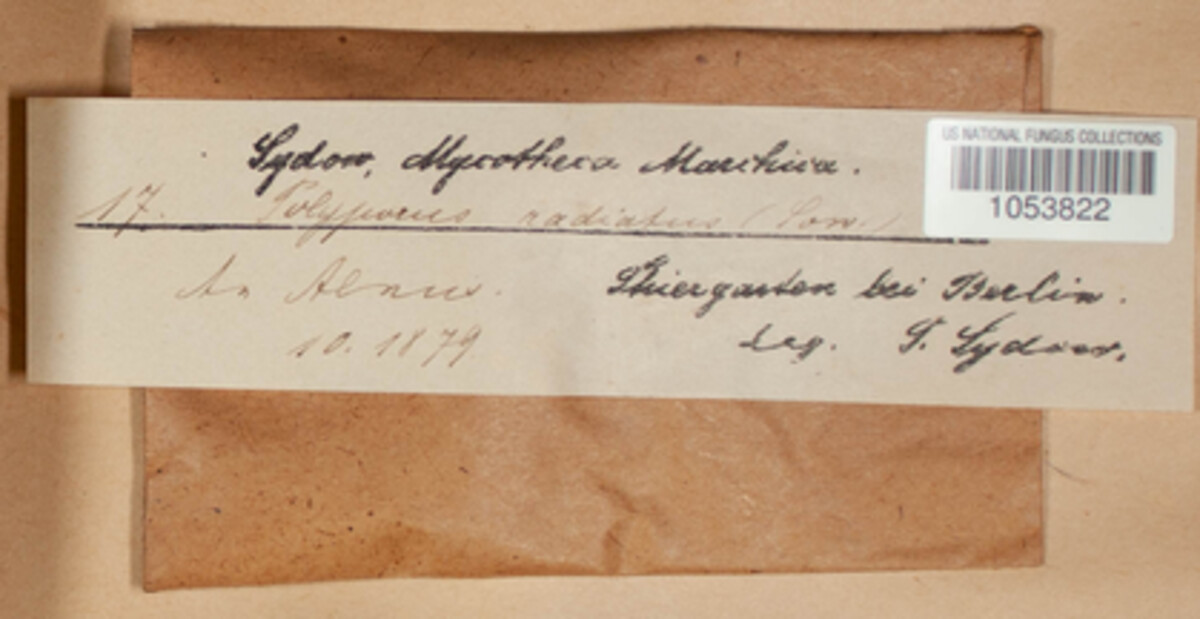 Sydow, Mycotheca Marchica.
17. Polyporus radiatus (Sow.)
An Alnus.
10. 1879
Thiergarten bei Berlin.
Leg. P. Sydow.
US NATIONAL FUNGUS COLLECTIONS
1053822